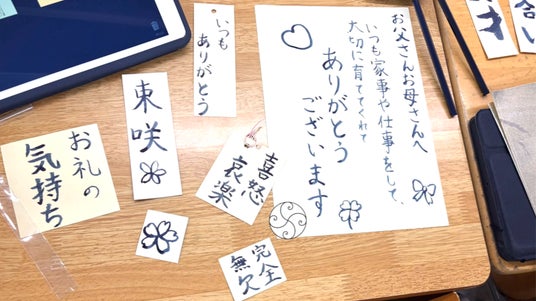 いつも
ありがとう
お父さんお母さんへ
いつも家事や仕事をして、
大切に育ててくれて
ありがとう
ございます
東咲
お礼の
気持ち
喜怒
哀楽
完全
無欠
才
合い